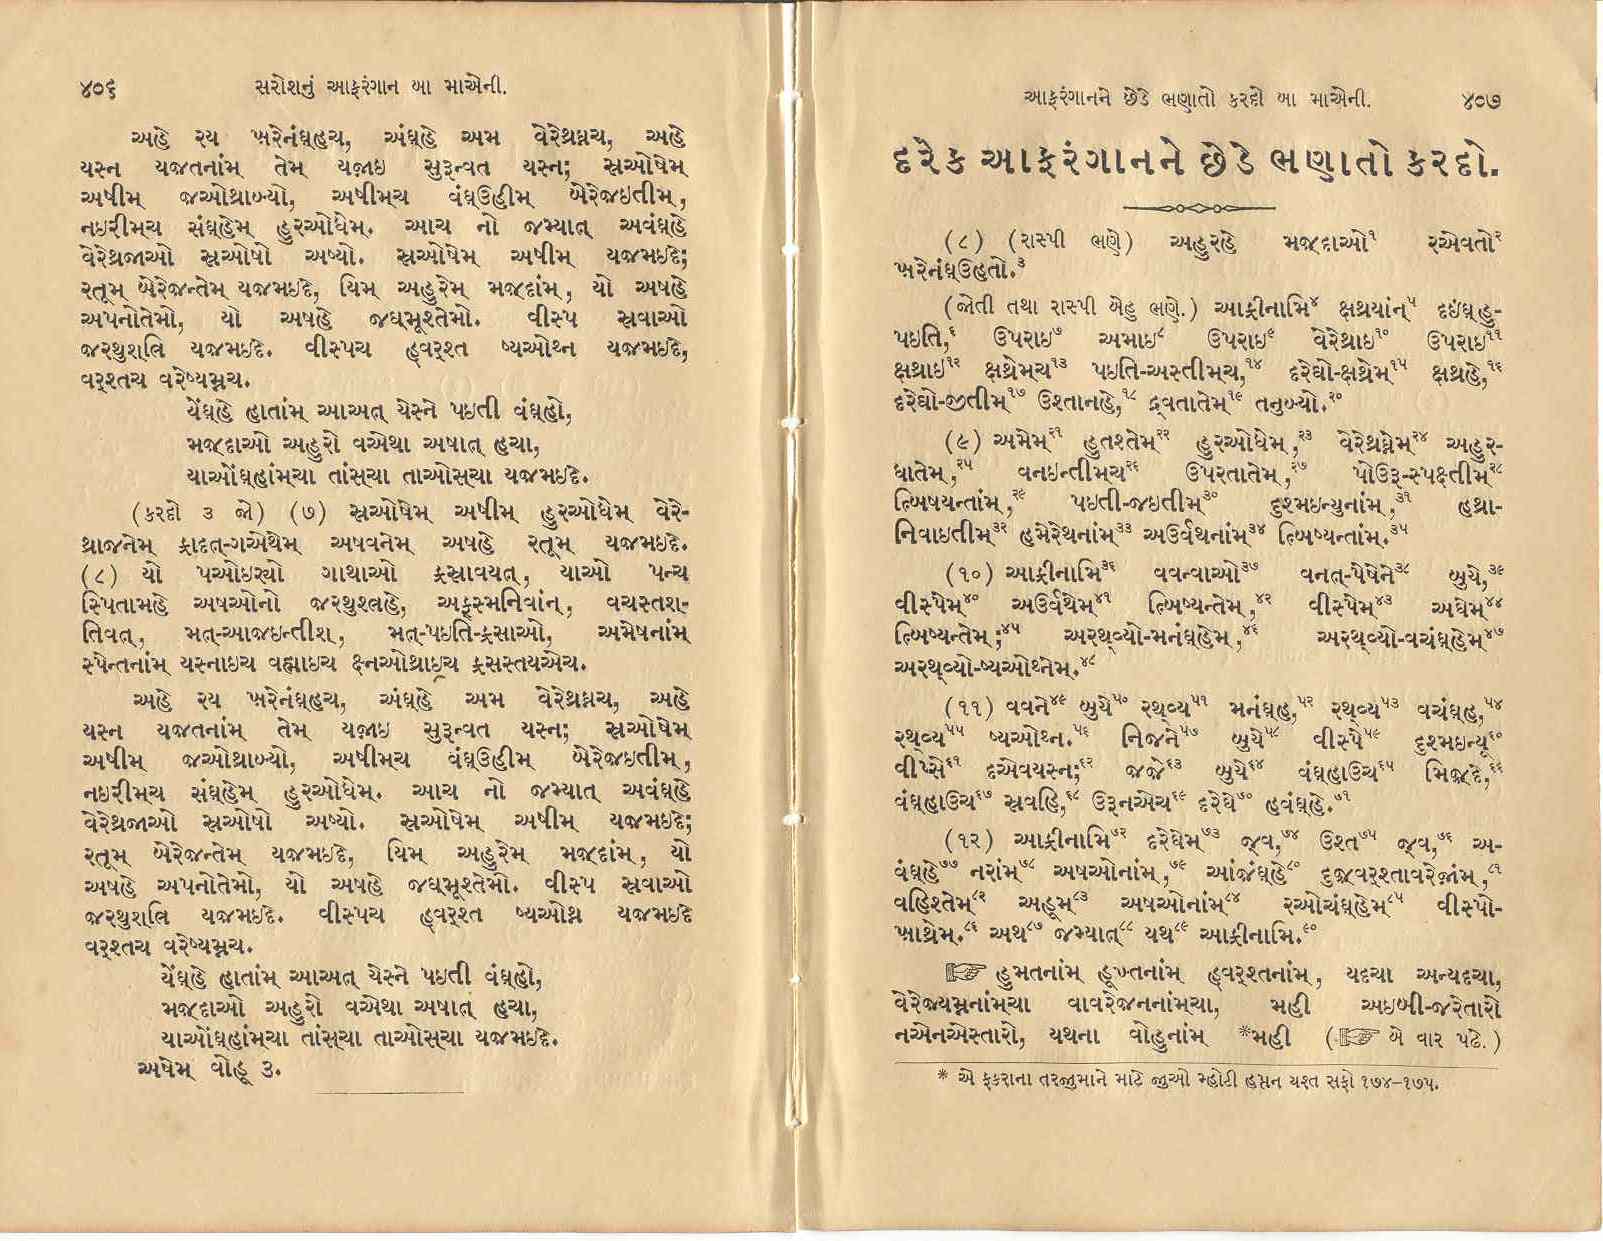 ૪૦૬ સરોશનું આફરંગાન બા માએની.
અહે રય ખરેનંઘ્હચ, અંઘ્હે અમ વેરેથ્રઘ્નચ, અહે
યસ્ન યજતનાંમ્ તેમ્ યજ઼ાઇ સુરૂન્વત યસ્ન; સ્રઓષેમ્
અષીમ્ જઓથ્રાબ્યો, અષીમ્ચ વંઘ્ઉહીમ્ બેરેજઇતીમ્,
નઇરીમ્ચ સંઘ્હેમ્ હુરઓધેમ્. આચ નો જમ્યાત્ અવંઘ્હે
વેરેથ્રજાઓ સ્રઓષો અષ્યો. સ્રઓષેમ્ અષીમ્ યજમઇદે;
રતૂમ્ બેરેજન્તેમ્ યજમઇદે, યિમ્ અહુરેમ્ મજ઼દાંમ્, યો અષહે
અપનોતેમો, યો અષહે જઘ્મૂશ્તેમો. વીસ્પ સ્રવાઓ
જ઼રથુશત્રિ યજમઇદે. વીસ્પચ હ્વર્શ્ત ષ્યઓથ્ન યજમઇદે,
વર્શ્તચ વરેષ્યમ્નચ.
યેંઘ્હે હાતાંમ્ આઅત્ યેસ્ને પઇતી વંઘ્હો,
મજ઼દાઓ અહુરો વએથા અષાત્ હચા,
યાઓંઘ્હાંમ્ચા તાંસ્ચા તાઓસ્ચા યજમઇદે.
(કરદો ૩ જો) (૭) સ્રઓષેમ્ અષીમ્ હુરઓધેમ્ વેરે-
થ્રાજનેમ્ ફ્રાદત્-ગએથેમ્ અષવનેમ્ અષહે રતૂમ્ યજમઇદે.
(૮) યો પઓઇર્યો ગાથાઓ ફ્રસ્રાવયત્, યાઓ પન્ચ
સ્પિતામહે અષઓનો જ઼રથુશ્ત્રહે, અફસ્મનિવાંન્, વચસ્તશ-
તિવત્, મત્-આજઇન્તીશ, મત્-પઇતિ-ફ્રસાઓ, અમેષનાંમ્
સ્પેન્તનાંમ્ યસ્નાઇચ વહ્માઇચ ક્ષ્નઓથ્રાઇચ ફ્રસસ્તયએચ.
અહે રય ખરેનંઘ્હચ, અંઘ્હે અમ વેરેથ્રઘ્નચ, અહે
યસ્ન યજતનાંમ્ તેમ્ યજ઼ાઇ સુરૂન્વત યસ્ન; સ્રઓષેમ્
અષીમ્ જઓથ્રાબ્યો, અષીમ્ચ વંઘ્ઉહીમ્ બેરેજઇતીમ્,
નઇરીમ્ચ સંઘ્હેમ્ હુરઓધેમ્. આચ નો જમ્યાત્ અવંઘ્હે
વેરેથ્રજાઓ સ્રઓષો અષ્યો. સ્રઓષેમ્ અષીમ્ યજમઇદે;
રતૂમ્ બેરેજન્તેમ્ યજમઇદે, યિમ્ અહુરેમ્ મજ઼દાંમ્, યો
અષહે અપનોતેમો, યો અષહે જઘ્મૂશ્તેમો. વીસ્પ સ્રવાઓ
જ઼રથુશત્રિ યજમઇદે. વીસ્પચ હ્વર્શ્ત ષ્યઓથ્ર યજમઇદે
વર્શ્તચ વરેષ્યમ્નચ.
યેંઘ્હે હાતાંમ્ આઅત્ યેસ્ને પઇતી વંઘ્હો,
મજ઼દાઓ અહુરો વએથા અષાત્ હચા,
યાઓંઘ્હાંમ્ચા તાંસ્ચા તાઓસ્ચા યજમઇદે.
અષેમ્ વોહૂ ૩.
આફરંગાનને છેડે ભણાતો કરદો બા માએની. ૪૦૭
દરેક આફરંગાનને છેડે ભણાતો કરદો.
(૮) (રાસ્પી ભણે) અહુરહે મજ઼દાઓ૧ રએવતો૨
ખરેનંઘ્ઉહતો.૩
(જોતી તથા રાસ્પી બેહુ ભણે.) આફ્રીનામિ૪ ક્ષથ્રયાંન્૫ દઇંઘ્હુ-
પઇતિ,૬ ઉપરાઇ૭ અમાઇ૮ ઉપરાઇ૯ વેરેથ્રાઇ૧૦ ઉપરાઇ૧૧
ક્ષથ્રાઇ૧૨ ક્ષથ્રેમ્ચ૧૩ પઇતિ-અસ્તીમ્ચ,૧૪ દરેઘો-ક્ષથ્રેમ્૧૫ ક્ષથ્રહે,૧૬
દરેઘો-જીતીમ્૧૭ ઉશ્તાનહે,૧૮ દ્રવતાતેમ્૧૯ તનુબ્યો.૨૦
(૯) અમેમ્૨૧ હુતશ્તેમ્૨૨ હુરઓધેમ્,૨૩ વેરેથ્રઘ્નેમ્૨૪ અહુર-
ધાતેમ્,૨૫ વનઇન્તીમ્ચ૨૬ ઉપરતાતેમ્,૨૭ પોઉરૂ-સ્પક્ષ્તીમ્૨૮
ત્બિષયન્તાંમ્,૨૯ પઇતી-જઇતીમ્૩૦ દુશ્મઇન્યુનાંમ્,૩૧ હથ્રા-
નિવાઇતીમ્૩૨ હમેરેથનાંમ્૩૩ અઉર્વથનાંમ્૩૪ ત્બિષ્યન્તાંમ્.૩૫
(૧૦) આફ્રીનામિ૩૬ વવન્વાઓ૩૭ વનત્-પેષેને૩૮ બુયે,૩૯
વીસ્પેમ્૪૦ અઉર્વથેમ્૪૧ ત્બિષ્યન્તેમ્,૪૨ વીસ્પેમ્૪૩ અઘેમ્૪૪
ત્બિષ્યન્તેમ્;૪૫ અરથ્વ્યો-મનંઘ્હેમ્,૪૬ અરથ્વ્યો-વચંઘ્હેમ્૪૭
અરથ્વ્યો-ષ્યઓથ્નેમ્.૪૮
(૧૧) વવને૪૯ બુયે૫૦ રથ્વ્ય૫૧ મનંઘ્હ,૫૨ રથ્વ્ય૫૩ વચંઘ્હ,૫૪
રથ્વ્ય૫૫ ષ્યઓથ્ન.૫૬ નિજને૫૭ બુયે૫૮ વીસ્પે૫૯ દુશ્મઇન્યૂ૬૦
વીપ્સે૬૧ દએવયસ્ન;૬૨ જજ઼ે૬૩ બુયે૬૪ વંઘ્હાઉચ૬૫ મિજ઼્દે,૬૬
વંઘ્હાઉચ૬૭ સ્રવહિ,૬૮ ઉરૂનએચ૬૯ દરેઘે૭૦ હવંઘ્હે.૭૧
(૧૨) આફ્રીનામિ૭૨ દરેઘેમ્૭૩ જ્વ,૭૪ ઉશ્ત૭૫ જ્વ,૭૬ અ-
વંઘ્હે૭૭ નરાંમ્૭૮ અષઓનાંમ્,૭૯ આંજંઘ્હે૮૦ દુજ઼્વર્શ્તાવરેજ઼ાંમ્,૮૧
વહિશ્તેમ્૮૨ અહૂમ્૮૩ અષઓનાંમ્૮૪ રઓચંઘ્હેમ્૮૫ વીસ્પો-
ખાથ્રેમ્.૮૬ અથ૮૭ જમ્યાત્૮૮ યથ૮૯ આફ્રીનામિ.૯૦
☞ હુમતનાંમ્ હૂખ્તનાંમ્ હ્વર્શ્તનાંમ્, યદચા અન્યદચા,
વેરેજ્યમ્નનાંમ્ચા વાવરેજનનાંમ્ચા, મહી અઇબી-જરેતારો
નએનએસ્તારો, યથના વોહુનાંમ્ *મહી (☞ બે વાર પઢે.)
* એ ફકરાના તરજુમાને માટે જુઓ મ્હોટી હપ્તન યશ્ત સફો ૧૭૪-૧૭૫.